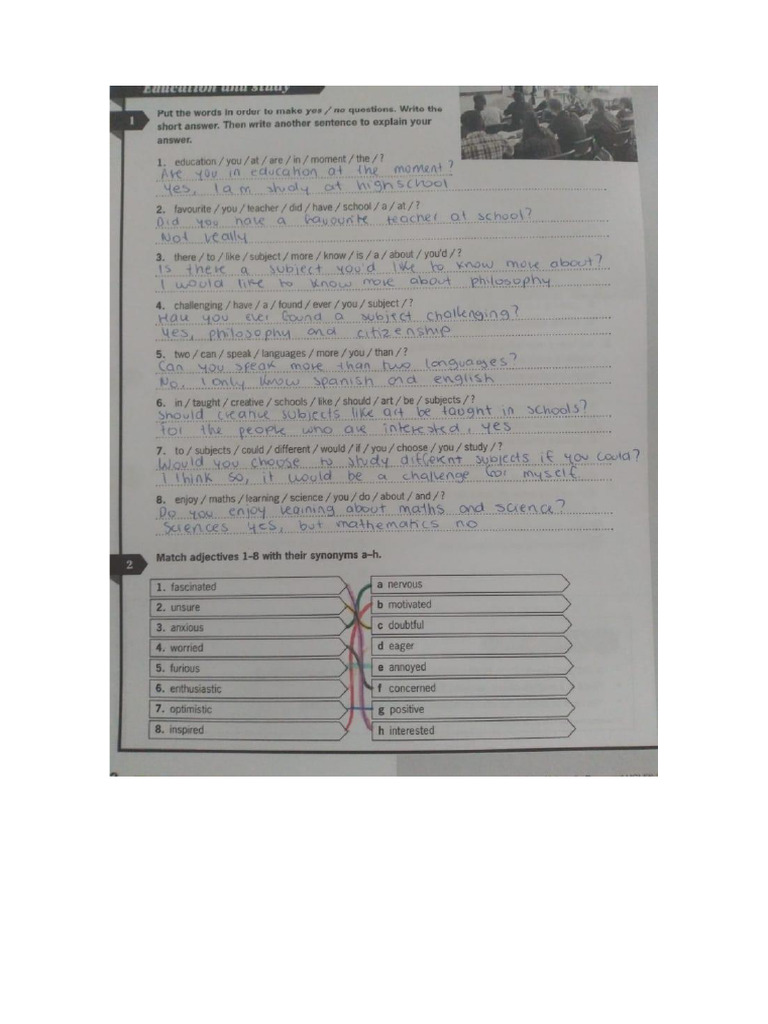 Education and study
1
Put the words in order to make yes / no questions. Write the
short answer. Then write another sentence to explain your
answer.
1. education / you / at / are / in / moment / the / ?
Are you in education at the moment?
Yes, I am study at highschool
2. favourite / you / teacher / did / have / school / a / at / ?
Did you have a favourite teacher at school?
Not really
3. there / to / like / subject / more / know / is / a / about / you'd / ?
Is there a subject you'd like to know more about?
I would like to know more about philosophy
4. challenging / have / a / found / ever / you / subject / ?
Have you ever found a subject challenging?
Yes, philosophy and citizenship
5. two / can / speak / languages / more / you / than / ?
Can you speak more than two languages?
No, I only know spanish and english
6. in / taught / creative / schools / like / should / art / be / subjects / ?
Should creative subjects like art be taught in schools?
For the people who are interested, yes
7. to / subjects / could / different / would / if / you / choose / you / study / ?
Would you choose to study different subjects if you could?
I think so, it would be a challenge for myself
8. enjoy / maths / learning / science / you / do / about / and / ?
Do you enjoy learning about maths and science?
Sciences yes, but mathematics no
2
Match adjectives 1–8 with their synonyms a–h.
1. fascinated
a nervous
2. unsure
b motivated
3. anxious
c doubtful
4. worried
d eager
5. furious
e annoyed
6. enthusiastic
f concerned
7. optimistic
g positive
8. inspired
h interested